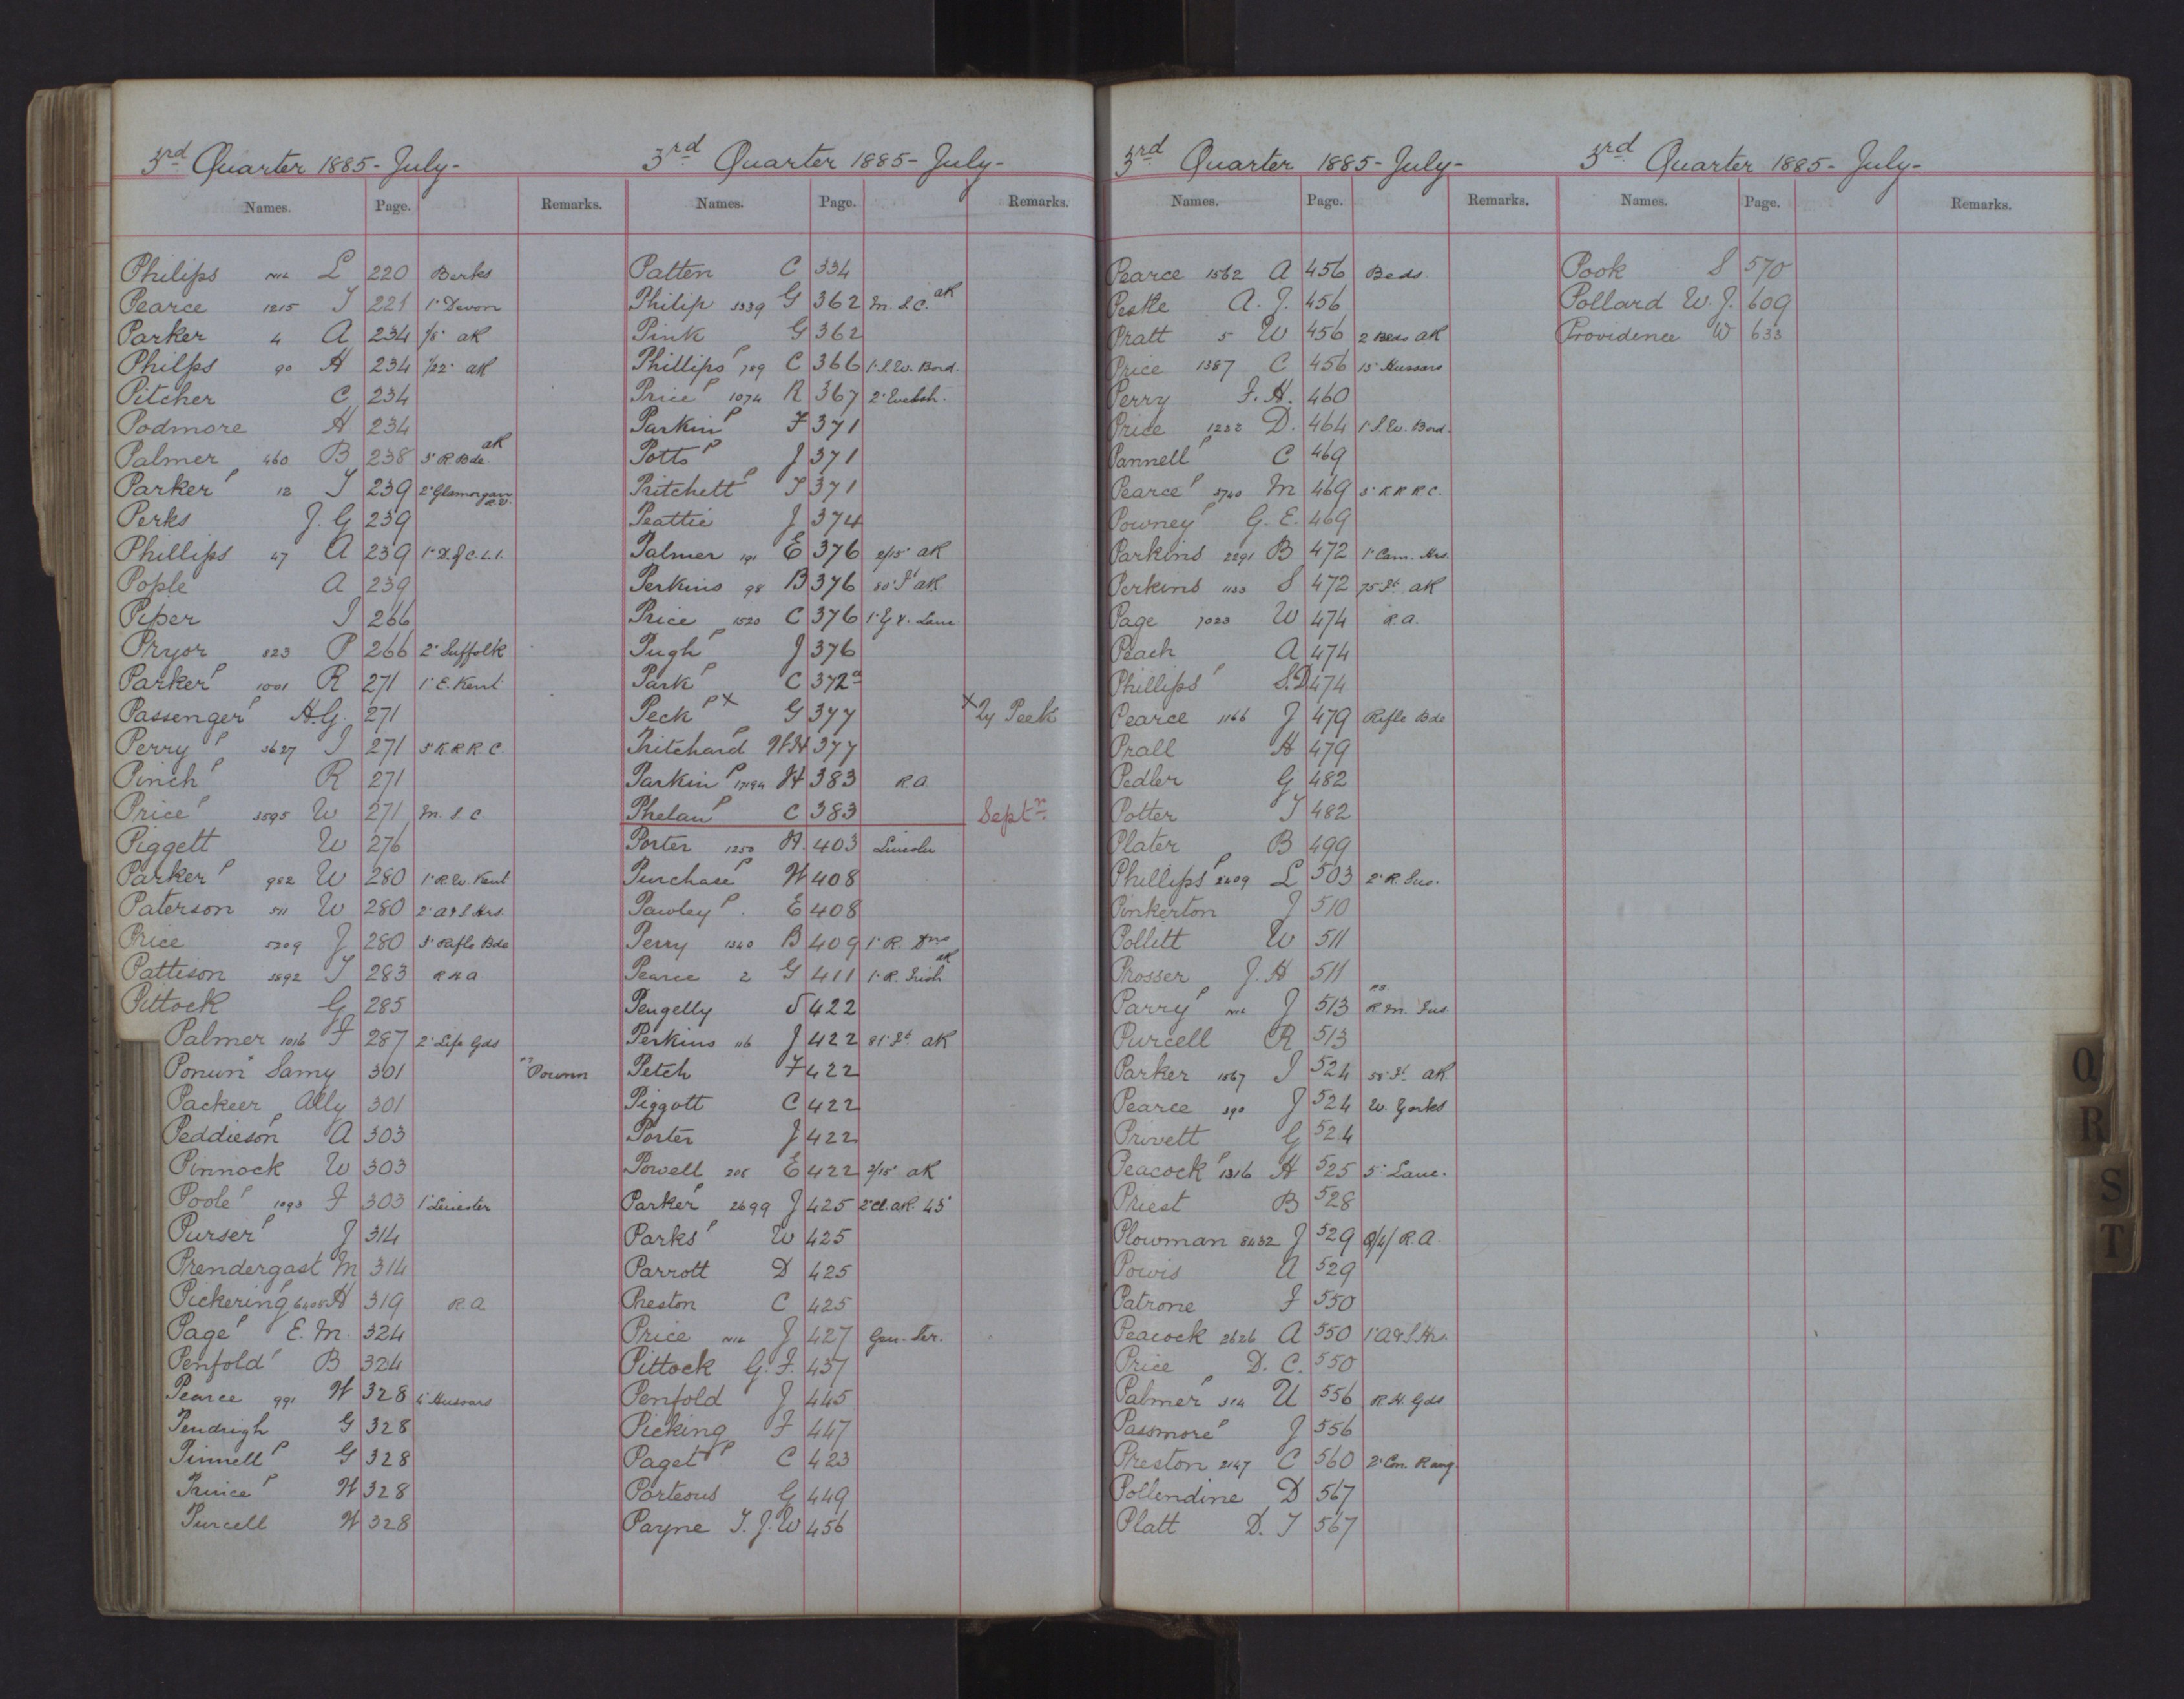 3rd Quarter 1885 - July -
Names. Page. Remarks.
Philips L 220 Berks
Pearce 1215 T 221 1" Devon
Parker 4 A 234 1/5" AR
Philps 90 H 234 1/22" AR
Pitcher C 234
Podmore H 234
Palmer 460 B 238 3" R. Bde AR
Parker P 12 T 239 2" Glamorgan R.V.
Perks J. G 239
Phillips 47 A 239 1" D. of C. L. I.
Pople A 239
Piper J 266
Pryor 823 P 266 2" Suffolk
Parker P 1001 R 271 1" E. Kent
Passenger P H.G. 271
Perry P 3627 J 271 3" K R R C.
Pinch P R 271
Price P 3595 W 271 M. S. C.
Piggett W 276
Parker P 982 W 280 1" R. W. Kent
Paterson 511 W 280 2" A & S Hrs.
Price 5209 J 280 3" Rifle Bde
Pattison 3892 T 283 R H A
Pittock G 285
Palmer 1016 F 287 2" Life Gds
Ponun Samy 301 Pounn
Packeer Ally 301
Peddieson P A 303
Pinnock W 303
Poole P 1093 F 303 1" Leicester
Purser P J 314
Prendergast M 314
Pickering P 6405 H 319 R. A.
Page P E. M. 324
Penfold P B 324
Pearce 991 W 328 4" Hussars
Pendrigh G 328
Pinnell P G 328
Prince P W 328
Purcell W 328
3rd Quarter 1885 - July -
Names. Page. Remarks.
Patten C 334
Philip 3339 G 362 M. S. C. AR
Pink G 362
Phillips P 789 C 366 1" S. W. Bord.
Price P 1074 R 367 2" Welsh.
Parkin P F 371
Potts P J 371
Pritchett P T 371
Peattie J 374
Palmer 191 E 376 2/15" AR
Perkins 98 B 376 80" Ft AR.
Price 1520 C 376 1" Lanc
Pugh P J 376
Park P C 372a
Peck P x G 377 x Qy Peek
Pritchard P W H 377
Parkin P H 383 R A.
Phelan P C 383 Septr.
Porter 1250 H. 403 Lincoln
Purchase P W 408
Pawley P. E 408
Perry 1340 B 409 1" R. Dns
Pearce 2 G 411 1" R. Irish AR
Pengelly S 422
Perkins 116 J 422 81" Ft. AR
Petch F 422
Piggott C 422
Porter J 422
Powell 208 E 422 2/15" AR
Parker P 2699 J 425 2" Cl. AR. 43"
Parks P W 425
Parrott D 425
Preston C 425
Price J 427 Gen. Ser.
Pittock G. F. 437
Penfold J 445
Picking F 447
Paget P C 423
Porteous G 449
Payne T. J. W 456
3rd Quarter 1885 - July -
Names. Page. Remarks.
Pearce 1562 A 456 Beds
Peskle A. J. 456
Pratt 5 W 456 2 Beds AR
Price 1387 C 456 15" Hussars
Perry F. H. 460
Price 1232 D. 464 1" S. W. Bord.
Pannell P C 469
Pearce P 3740 M 469 3" K R R C.
Powney P G. E. 469
Parkins 2291 B 472 1" Cam. Hrs.
Perkins 1133 S 472 75" Ft. AR
Page 7023 W 474 R. A.
Peach A 474
Phillips P S. D 474
Pearce 1166 J 479 Rifle Bde
Prall H 479
Pedler G 482
Potter T 482
Plater B 499
Phillips P 2409 L 503 2" R. Sus.
Pinkerton J 510
Pollitt W 511
Prosser J. H 511
Parry P J 513 R. M. Fus.
Purcell R 513
Parker 1567 J 524 58" Ft. AR.
Pearce 390 J 524 W. Yorks
Privett G 524
Peacock P 1316 H 525 5" Lanc.
Priest B 528
Plowman 8432 J 529 8/4/ R. A.
Powis A 529
Patrone F 550
Peacock 2626 A 550 1" A & S. Hrs.
Price D. C. 550
Palmer P 314 U 556 R. H. Gds
Passmore P J 556
Preston 2147 C 560 2" Con. Rang.
Pollendine D 567
Platt D. T 567
3rd Quarter 1885 - July -
Names. Page. Remarks.
Pook S 570
Pollard W. J. 609
Providence W 633
Q
R
S
T